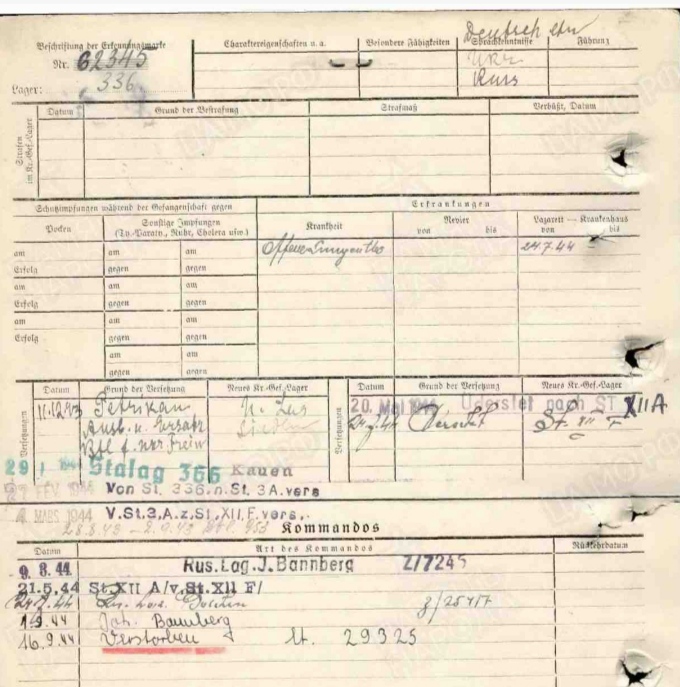 Beschriftung der Erkennungsmarke
Nr. 62345
336
Lager:
Charaktereigenschaften u. a.
Besondere Fähigkeiten
Deutsch
Sprachkenntnisse
Ukr
Russ
Führung
Strafen im Kr.-Gef.-Lager
Datum Grund der Bestrafung Strafmaß Verbüßt, Datum
Schutzimpfungen während der Gefangenschaft gegen
Erkrankungen
Pocken
Sonstige Impfungen
(Ty.-Paraty., Ruhr, Cholera usw.)
Krankheit
Revier
von bis
Lazarett — Krankenhaus
von bis
am am am
24.7.44
Erfolg gegen gegen
am am am
Erfolg gegen gegen
am am am
Erfolg gegen gegen
am am
gegen gegen
Versetzungen
Datum Grund der Versetzung Neues Kr.-Gef.-Lager
11.12.43 Petrikau
Ausb. u. Ersatz
Btl f.
Versetzungen
Datum Grund der Versetzung Neues Kr.-Gef.-Lager
20. Mai 1944 Überstet nach ST XIIA
24.7.44 St. XII F
29 1 Stalag 366 Kauen
FEV. 1944 Von St. 336.n.St. 3A.vers
4 MARS 1944 V.St.3,A.z,St,XII,F.vers,.
28.8.43 – 2.9.43
Kommandos
Datum Art des Kommandos Rückkehrdatum
9. 8. 44 Rus.Lag.J.Bannberg Z/7245
21.5.44 St.XII A/v.St.XII F/
24.7.44
Z/25417
1.9.44 Joh. Bannberg
16.9.44 Verstorben lt. 29325